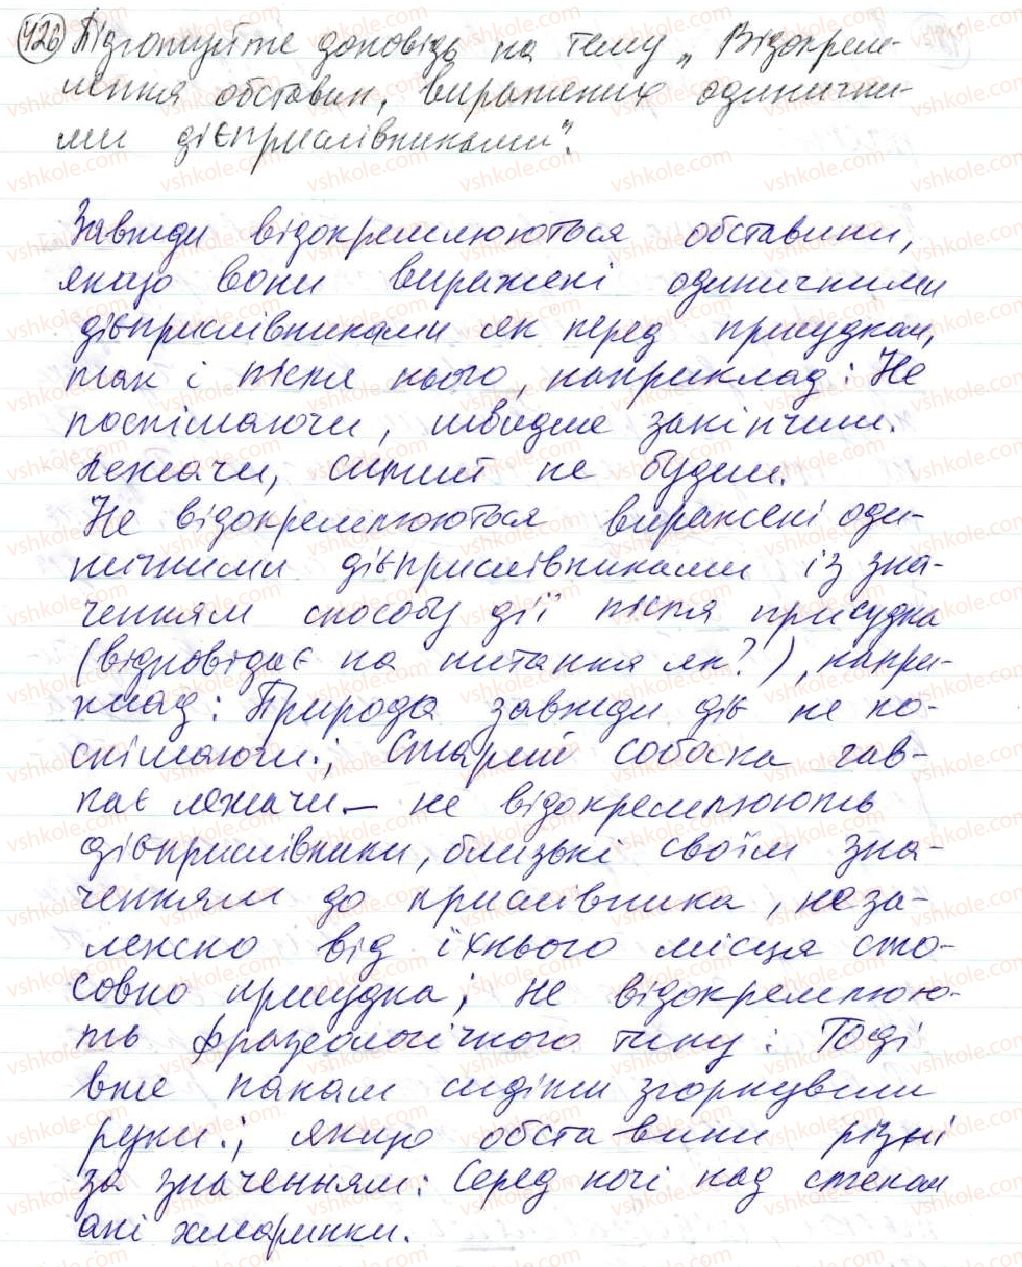 426 Підготуйте доповідь на тему „Відокрем-
лення обставин, виражених одинични-
ми дієприслівниками".
Завжди відокремлюються обставини,
якщо вони виражені одиничними
дієприслівниками як перед присудком,
так і після нього, наприклад: Не
поспішаючи, швидше закінчим.
Лежачи, ситий не будеш.
Не відокремлюються виражені оди-
ничними дієприслівниками із зна-
ченням способу дії після присудка
(відповідає на питання як?), напри-
клад: Природа завжди діє не по-
спішаючи.; Старий собака гав-
кає лежачи – не відокремлюють
дієприслівники, близькі своїм зна-
ченням до прислівника, неза-
лежно від їхнього місця сто-
совно присудка; не відокремлюю-
ть фразеологічного типу: Тоді
вже панам сидіти згорнувши
руки.; якщо обставини різні
за значенням: Серед ночі над степом
ані хмаринки.